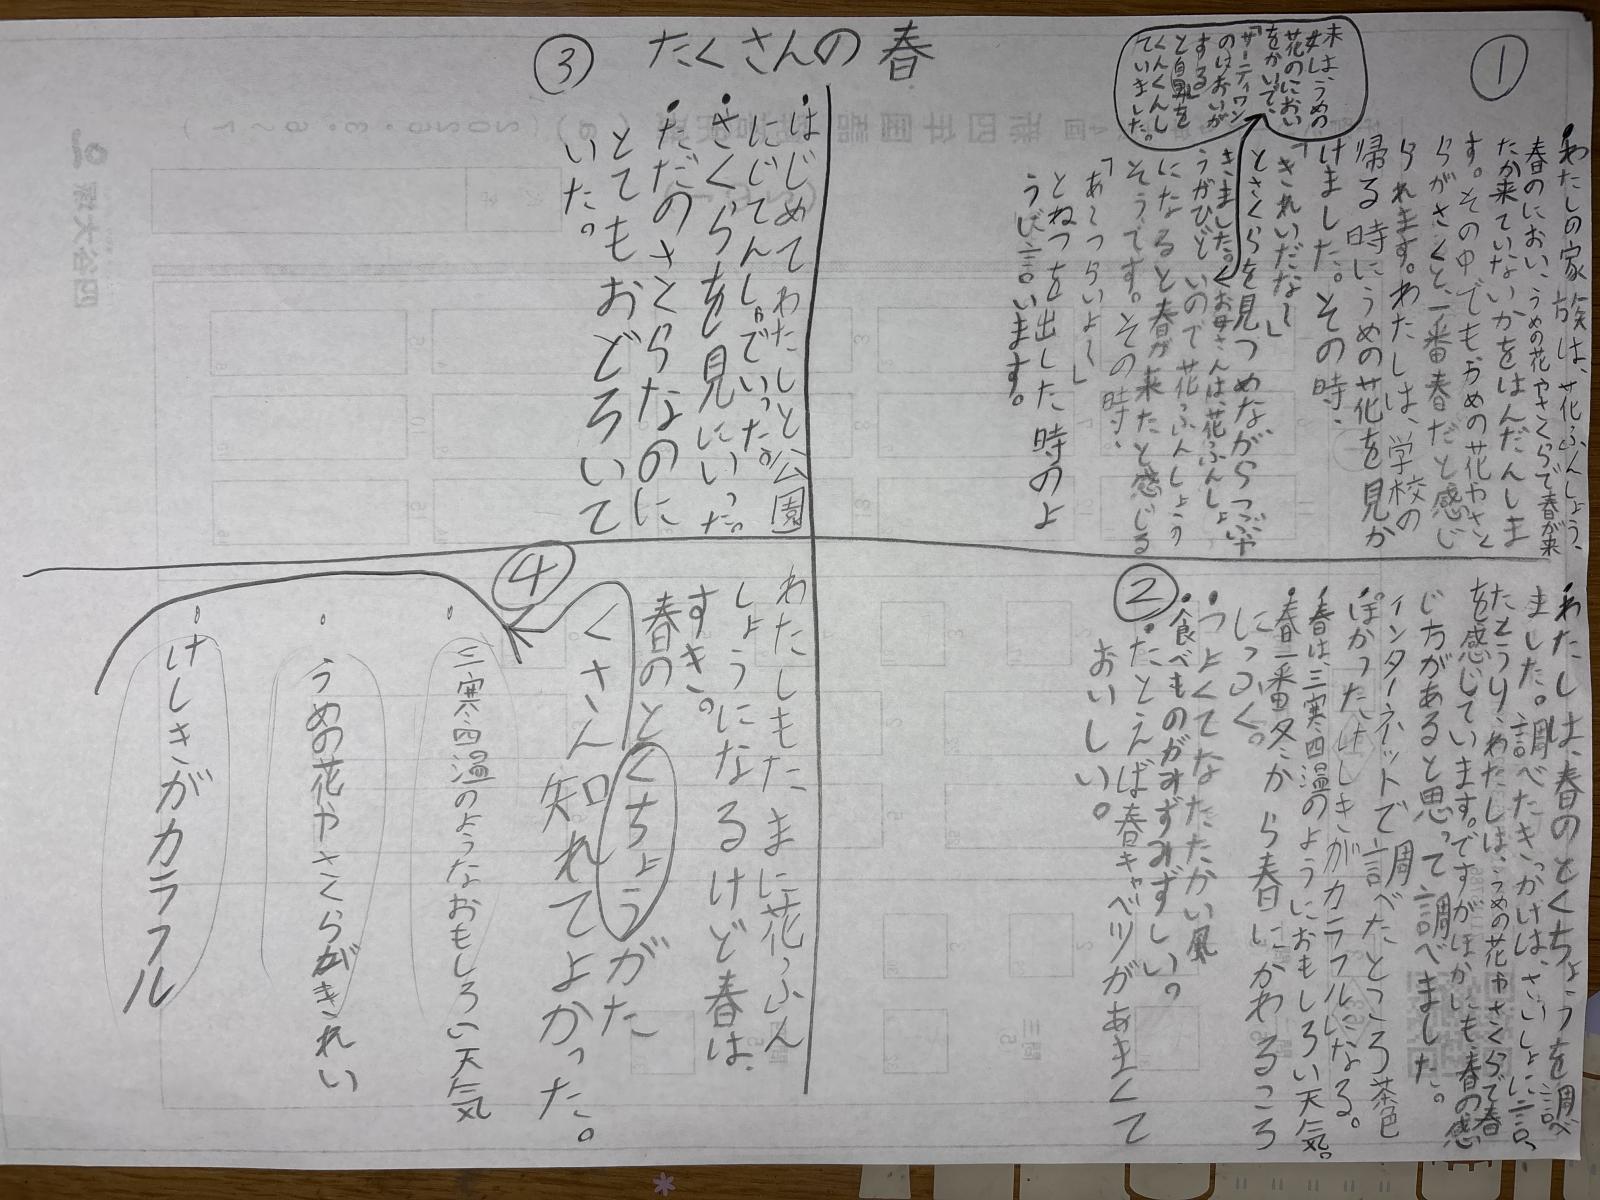 たくさんの春
①
・わたしの家族は、花ふんしょう、
春のにおい、うめの花やさくらで春が来
たか来ていないかをはんだんしま
す。その中でもおめの花やさく
らがさくと、一番春だと感じ
られます。わたしは、学校の
帰る時にうめの花を見か
けました。その時、
「きれいだな〜」
とさくらを見つめながらつぶや
きました。
妹は、うめの
花のにおい
をかいで、
「サーティワン
のにおいが
する」
と鼻を
くんくんし
ていました。
お母さんは、花ふんしょ
うがひどいので花ふんしょう
になると春が来たと感じる
そうです。その時、
「あ〜つらいよ〜」
とねつを出した時のよ
うに言います。
②
・わたしは、春のとくちょうを調べ
ました。調べたきっかけは、さいしょに言っ
たとうり、わたしは、うめの花やさくらで春
を感じています。ですがほかにも春の感
じ方があると思って調べました。
インターネットで調べたところ茶色
ぽかったけしきがカラフルになる。
・春は、三寒四温のようにおもしろい天気。
・春一番冬から春にかわるころ
につよくてなたたかい風
・食べものがみずみずしい。
・たとえば春キャベツがあまくて
おいしい。
③
・はじめてわたしと公園
にじてんしゃでいった。
・さくらを見にいった。
・ただのさくらなのに
とてもおどろいて
いた。
④
わたしもたまに花ふん
しょうになるけど春は、
すき。
春のとくちょうがた
くさん知れてよかった。
・三寒四温のようなおもしろい天気
・うめの花やさくらがきれい
・けしきがカラフル